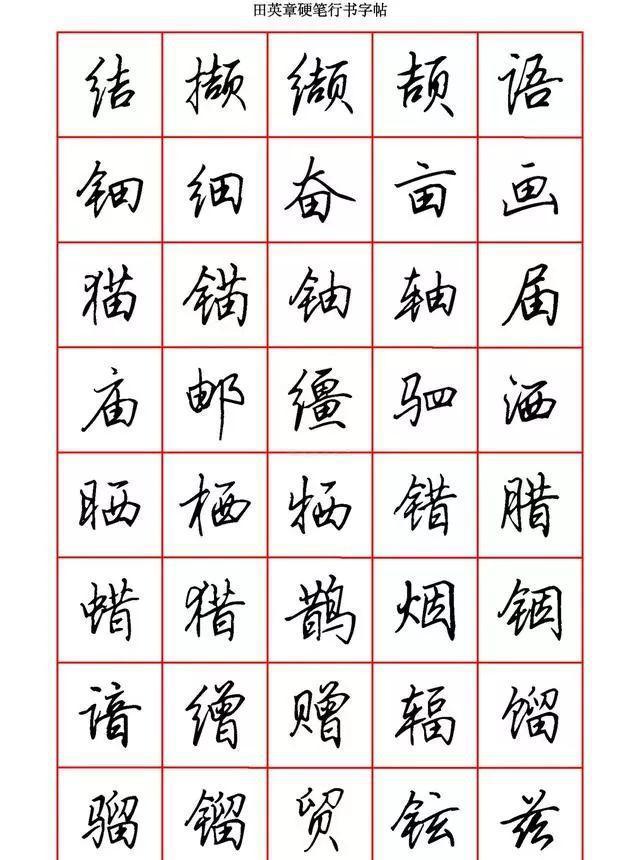 田英章硬笔行书字帖
结撷缬颉语
钿细奋亩画
猫锚铀轴届
庙邮缰驷洒
晒栖牺错腊
蜡猎鹊烟锢
谙缯赠辐馏
骝镏贸铉兹